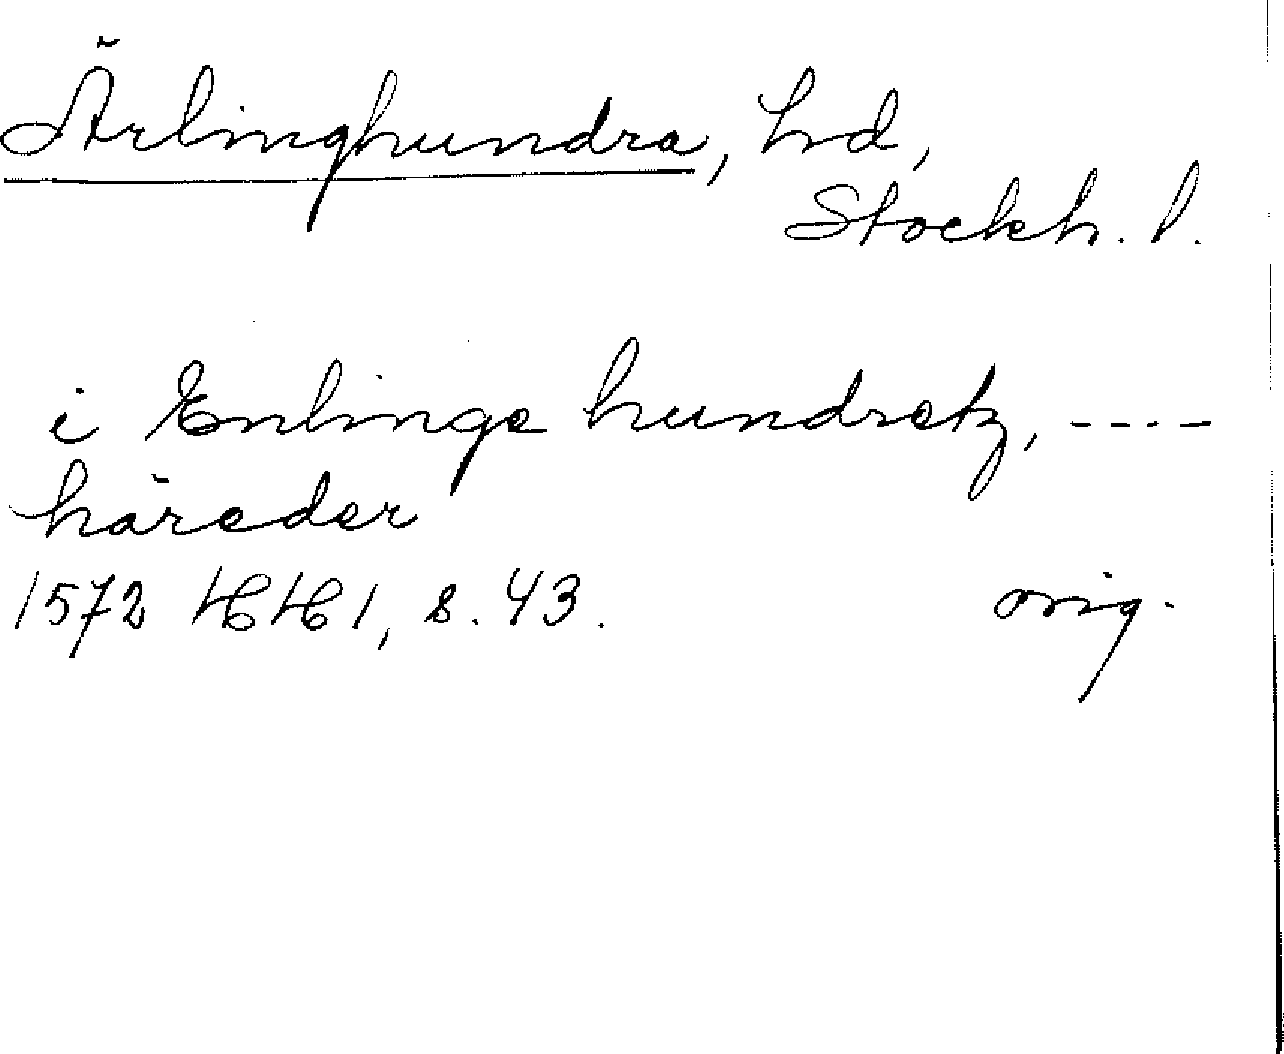 Ärlinghundra, hd,
Stockh. l.
i Enlinge hundretz, ----
häreder
1572 HH 1, s. 43. orig.